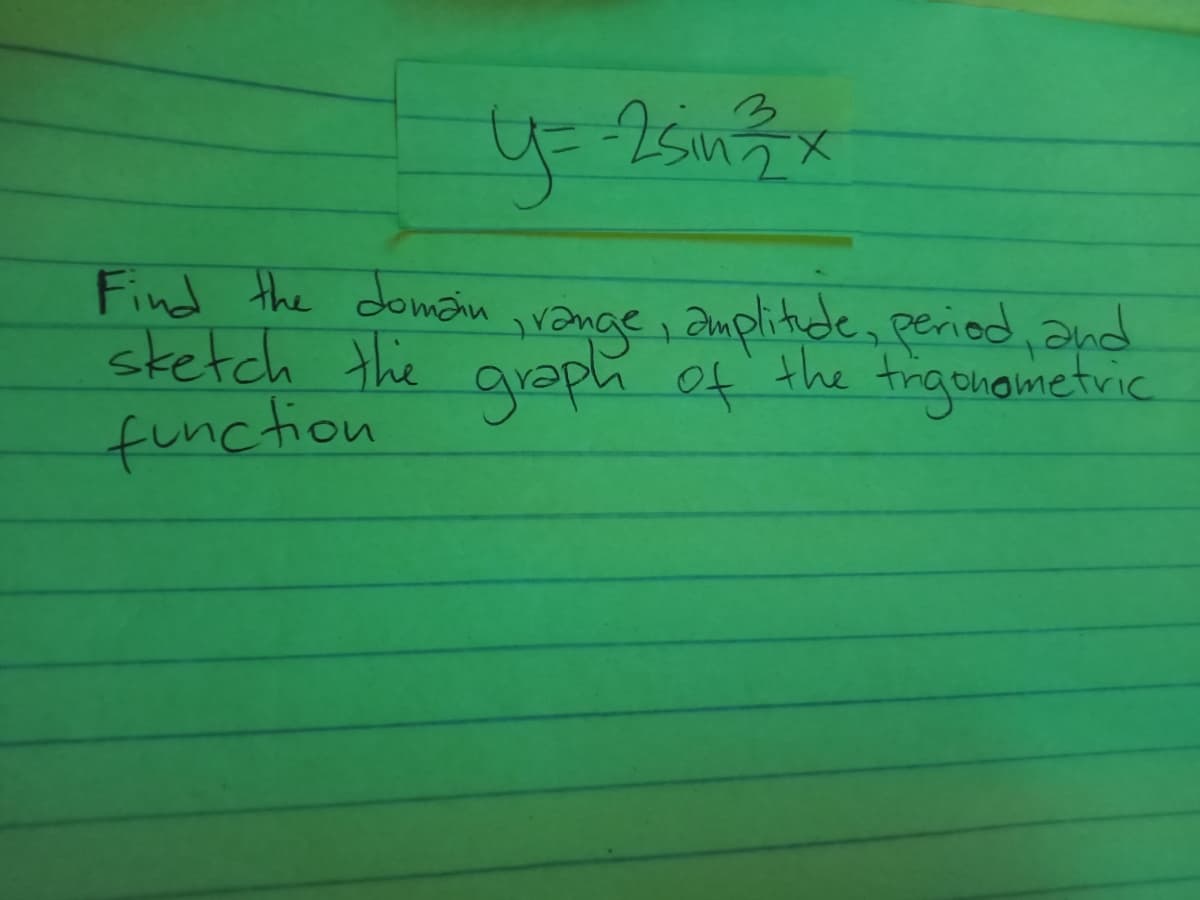 y = -2sin 3/2 x
Find the domain, range, amplitude, period, and
sketch the graph of the trigonometric
function